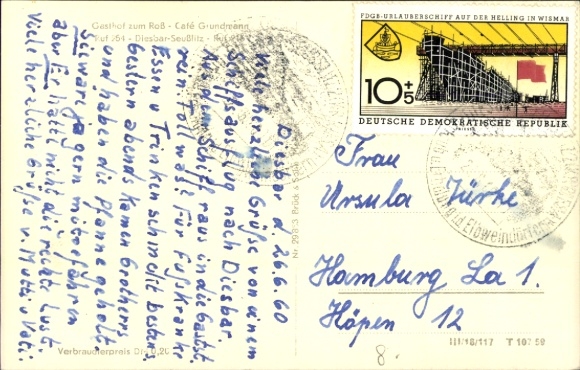 Gasthof zum Roß - Café Grundmann
Ruf 364 - Diesbar-Seußlitz
Diesbar d 26.6.60
Viele herzliche Grüße von einem
Schiffsausflug nach Diesbar.
Aus dem Schiff raus in die Gastst.
rein. Toll was? Für Fußkranke
Essen u Trinken schmeckt bestens.
Gestern abends kamen Grothers
und haben die Plane geholt.
Sie wäre ja gern mitgefahren
aber Er hatte nicht die rechte Lust.
Viele herzlich Grüße v. Mutti u Vati.
Verbraucherpreis DM 0,20
FDGB-URLAUBERSCHIFF AUF DER HELLING IN WISMAR
10+5
DEUTSCHE DEMOKRATISCHE REPUBLIK
Elbweindörfer
Frau
Ursula Jürke
Hamburg La 1.
Höpen 12
8.
III/18/117 T 107 59